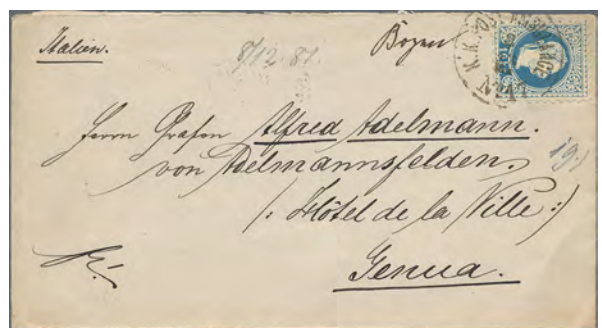 Italien.
8/12 81.
Bozen
K.K. POST AMBULANCE
Herrn Grafen Alfred Adelmann.
von Adelmannsfelden.
/: Hôtel de la Ville :/
Genua.